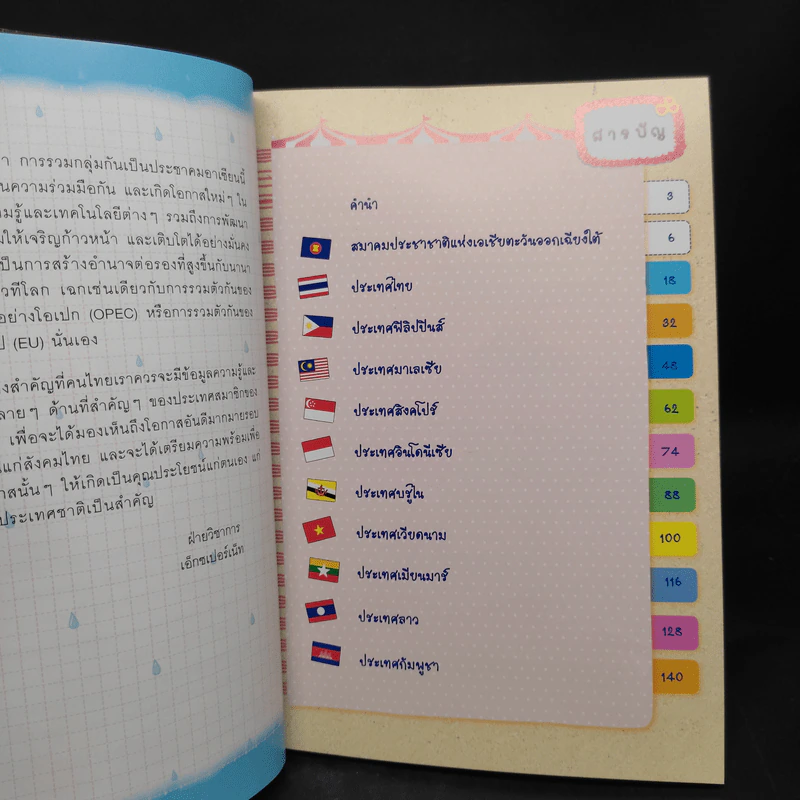 า การรวมกลุ่มกันเป็นประชาคมอาเซียนนี้
นความร่วมมือกัน และเกิดโอกาสใหม่ๆ ใน
มรู้และเทคโนโลยีต่างๆ รวมถึงการพัฒนา
มให้เจริญก้าวหน้า และเติบโตได้อย่างมั่นคง
เป็นการสร้างอำนาจต่อรองที่สูงขึ้นกับนานา
วทีโลก เฉกเช่นเดียวกับการรวมตัวกันของ
อย่างโอเปก (OPEC) หรือการรวมตัวกันของ
ป (EU) นั่นเอง
งสำคัญที่คนไทยเราควรจะมีข้อมูลความรู้และ
ลายๆ ด้านที่สำคัญๆ ของประเทศสมาชิกของ
เพื่อจะได้มองเห็นถึงโอกาสอันดีมากมายรอบ
นแก่สังคมไทย และจะได้เตรียมความพร้อมเพื่อ
าสนั้นๆ ให้เกิดเป็นคุณประโยชน์แก่ตนเอง แก่
ประเทศชาติเป็นสำคัญ
ฝ่ายวิชาการ
เอ็กซเปอร์เน็ท
สารบัญ
คำนำ 3
สมาคมประชาชาติแห่งเอเชียตะวันออกเฉียงใต้ 6
ประเทศไทย 18
ประเทศฟิลิปปินส์ 32
ประเทศมาเลเซีย 48
ประเทศสิงคโปร์ 62
ประเทศอินโดนีเซีย 74
ประเทศบรูไน 88
ประเทศเวียดนาม 100
ประเทศเมียนมาร์ 116
ประเทศลาว 128
ประเทศกัมพูชา 140